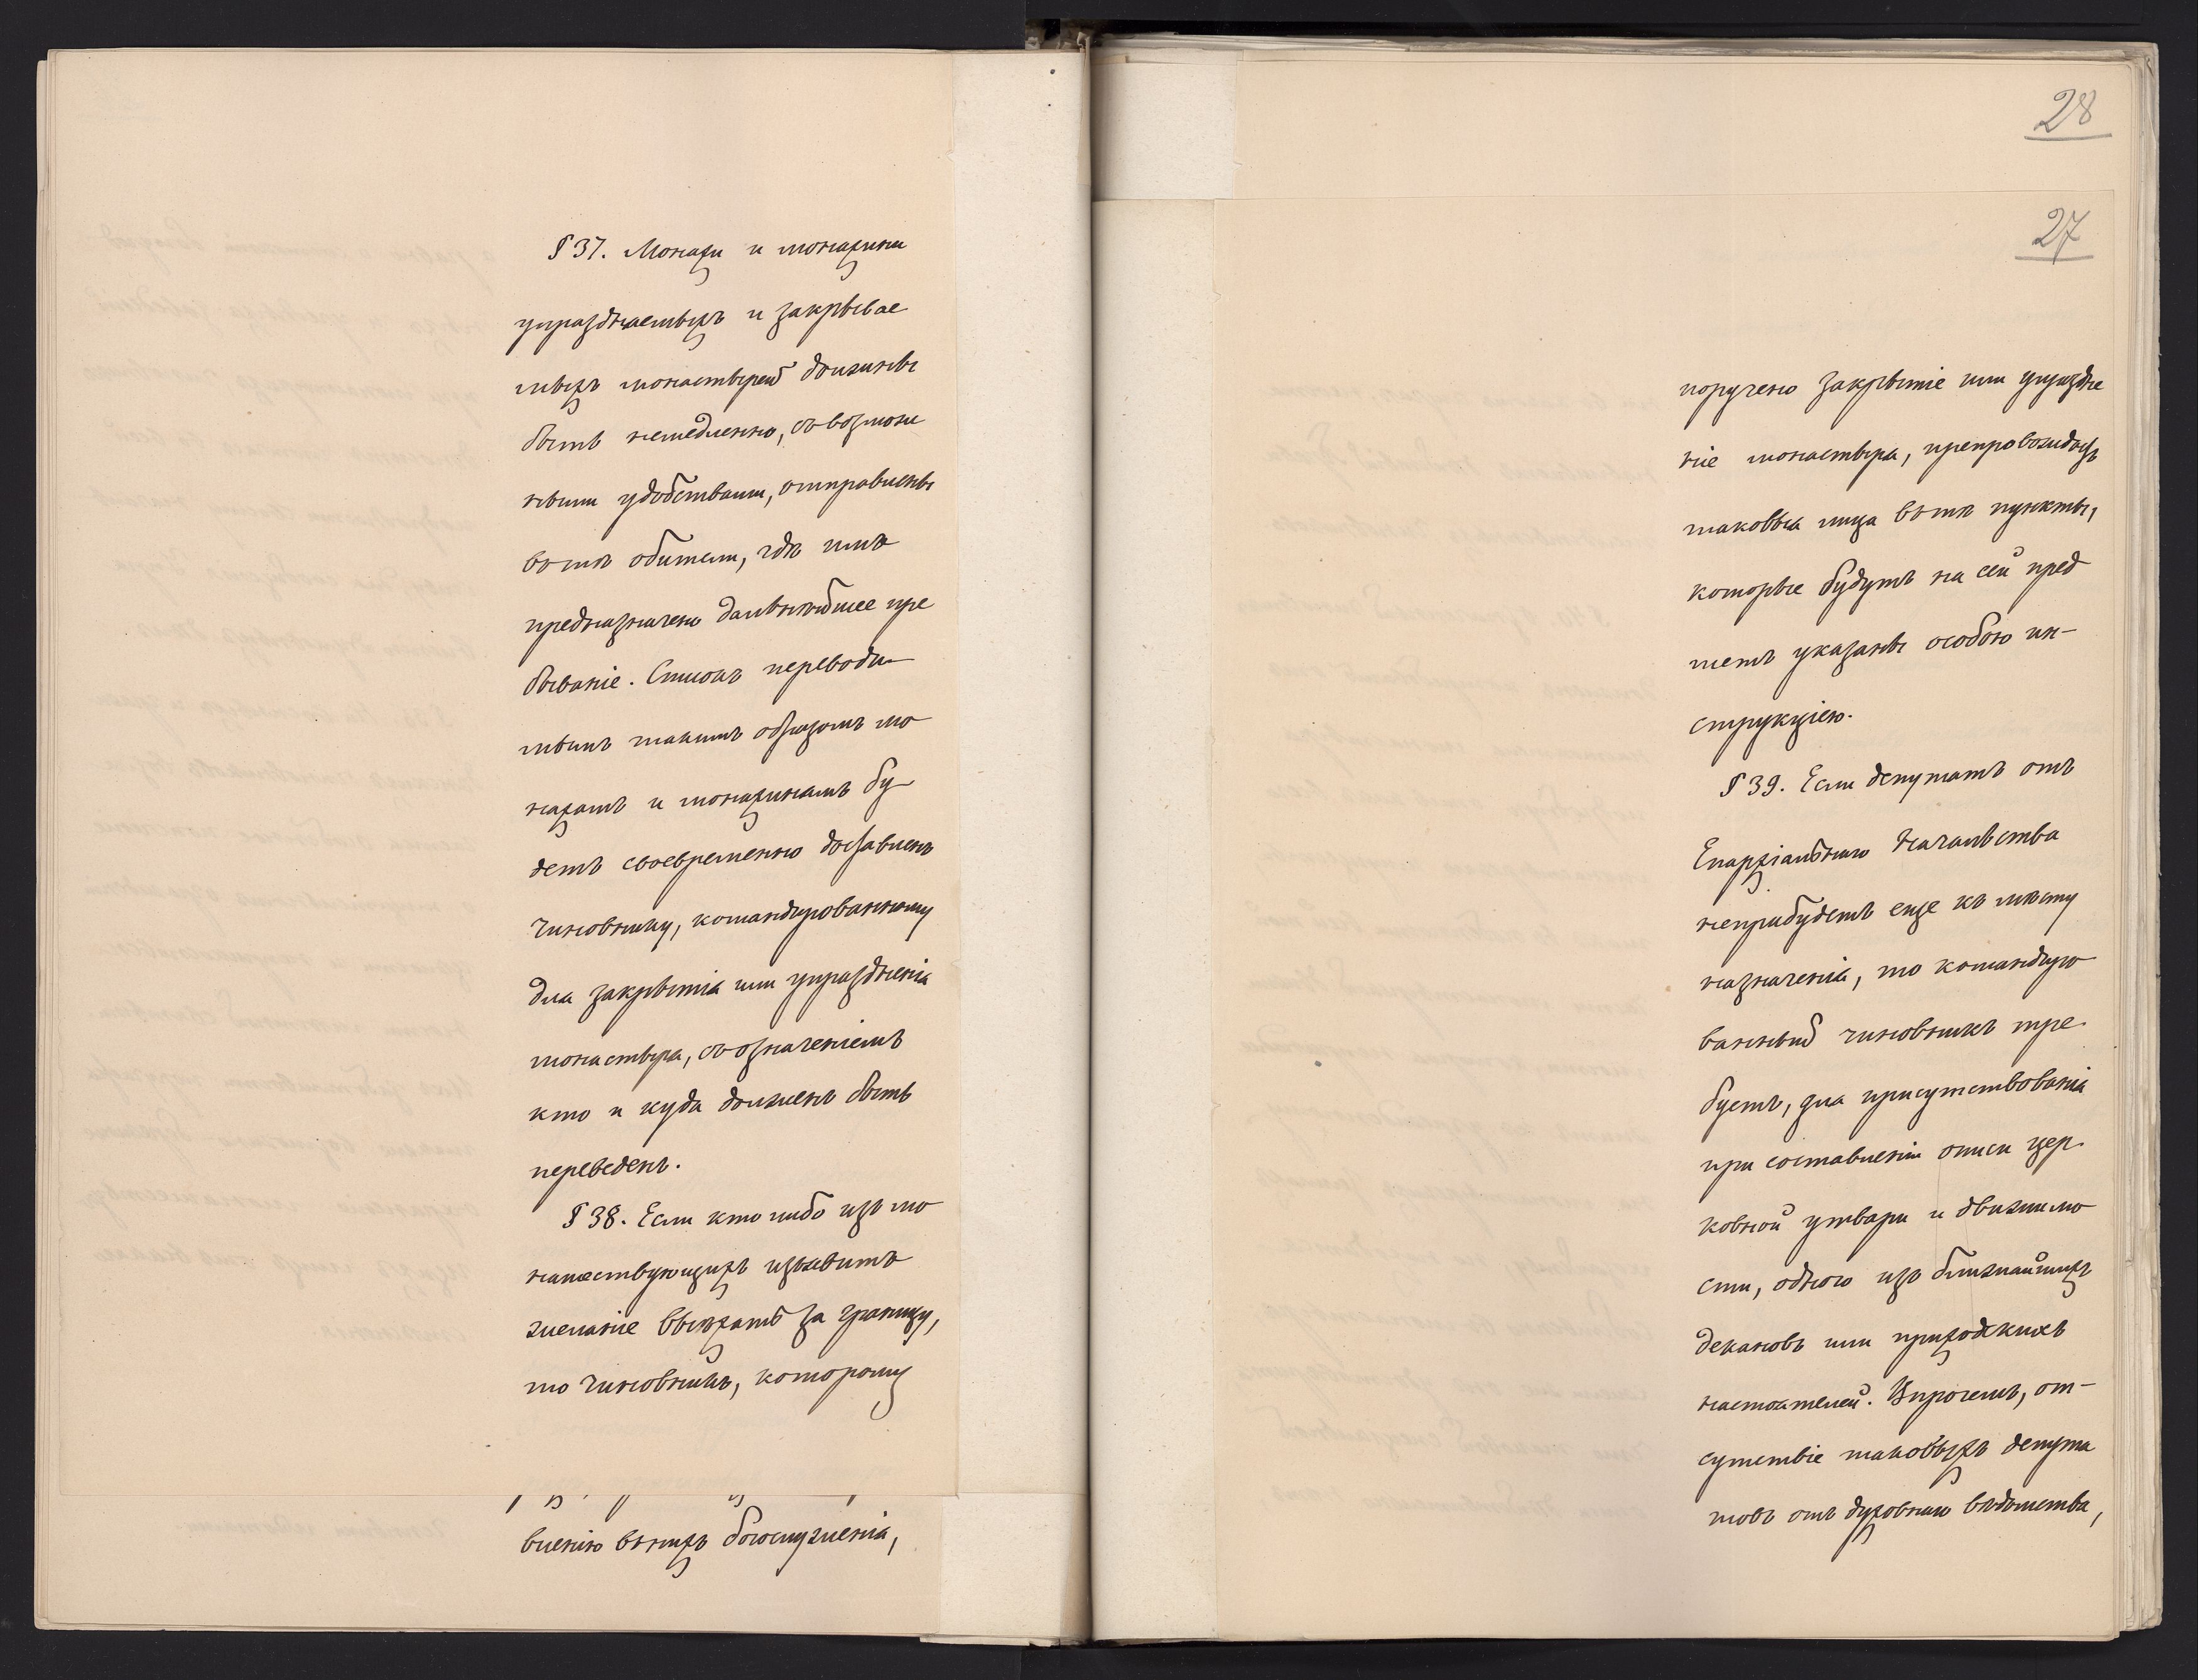 § 37. Монахи и монахини
упраздняемыхъ и закрывае
мыхъ монастырей должны
быть немедленно, съ возмож
ными удобствами, отправлены
въ тѣ обители, гдѣ имъ
предназначено дальнѣйшее пре
бываніе. Списокъ переводи
мымъ такимъ образомъ мо
нахамъ и монахинямъ бу
детъ своевременно доставленъ
чиновнику, командированному
для закрытія или упраздненія
монастыря, съ означеніемъ
кто и куда долженъ быть
переведенъ.
§ 38. Если кто либо изъ мо
нашествующихъ изъявитъ
желаніе выѣхать за границу,
то чиновникъ, которому
вленію въ нихъ богослуженія,
28
27
поручено закрытіе или упраздне
ніе монастыря, препровождаетъ
таковыя лица въ тѣ пункты,
которые будутъ на сей пред
метъ указаны особою ин-
струкціею.
§ 39. Если депутатъ отъ
Епархіальнаго Начальства
неприбудетъ еще къ мѣсту
назначенія, то командиро
ванный чиновникъ тре
буетъ, для присутствованія
при составленіи описи цер
ковной утвари и движимо
сти, одного изъ ближайшихъ
декановъ или приходскихъ
настоятелей. Впрочемъ, от-
сутствіе таковыхъ депута
товъ отъ духовнаго вѣдомства,